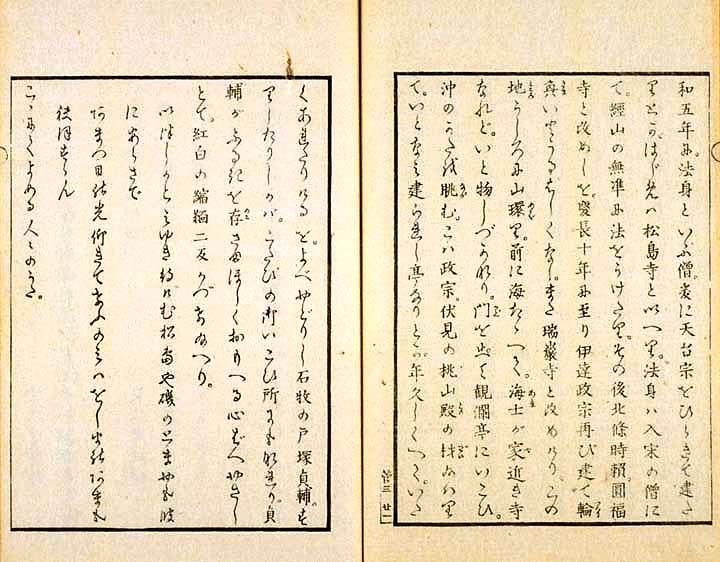 和五年に法身といふ僧爰に天台宗をひらきて建た
りとか。はじめハ松島寺と以へり。法身ハ入宋の僧に
て。經山の無準に法をうけたり。その後北條時頼圓福
寺と改めしを。慶長十年に至り伊達政宗再び建て。輪
奐いとうるはしくなし。また瑞巌寺と改めけり。この
地うしろに山環り。前に海たゝへて。海士が家近き寺
なれど。いと物しづかなり。門を出て観瀾亭にいこひ。
沖のかたを眺む。こハ政宗。伏見の桃山殿の材
て。いとなミ建られし亭なりとか。年久しく
菅三 廿一
くあれたりけるを。よべやどりし石牧の戸塚貞輔。
りしたりしが。こたびの御いこひ所にもなれり。貞
輔がふる記を存さまほしくおもへる心ばへやさし
とて。紅白の縮緬二反かづけ給へり。
以つしかとミゆき待けむ松島や磯のとまやも
に
あまつ日の光仰きてけふのミハ
袂ほすらん
こゝにてよめる人々のうた。